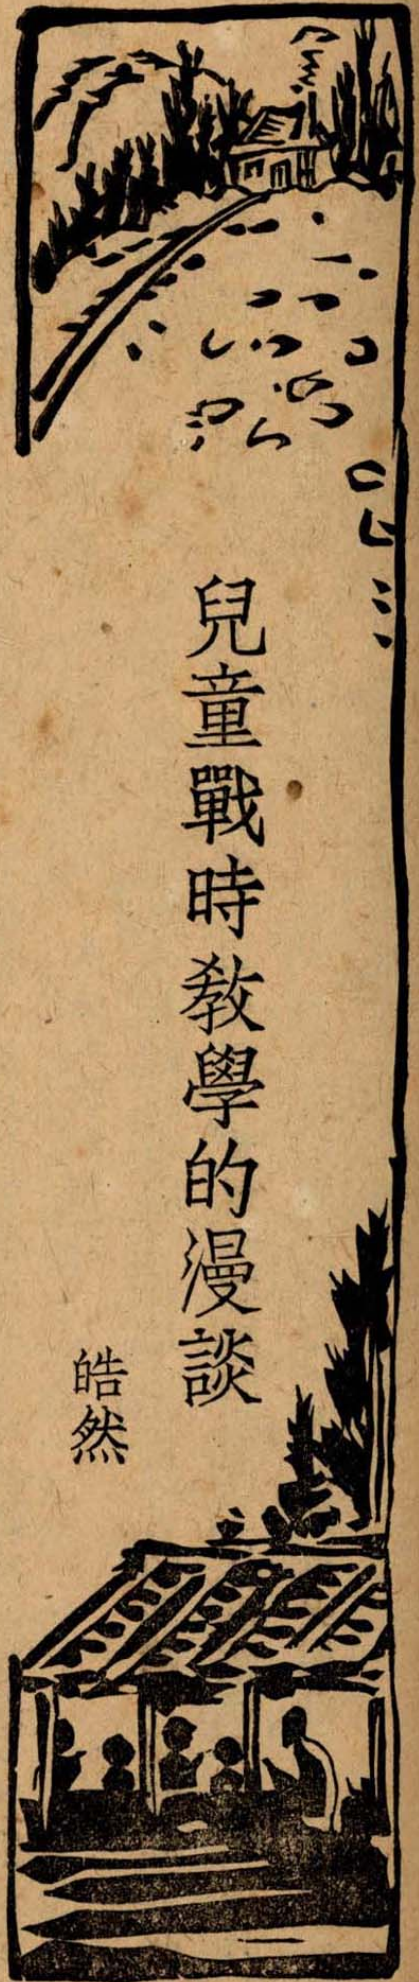 兒童戰時敎學的漫談
皓然